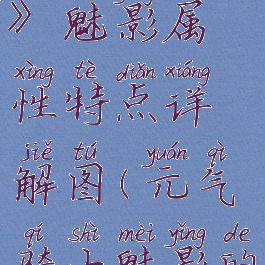 》魅影属
xìng tè diǎn xiáng
性特点详
jiě tú yuán qì
解图(元气
qí shì mèi yǐng de
骑士魅影的